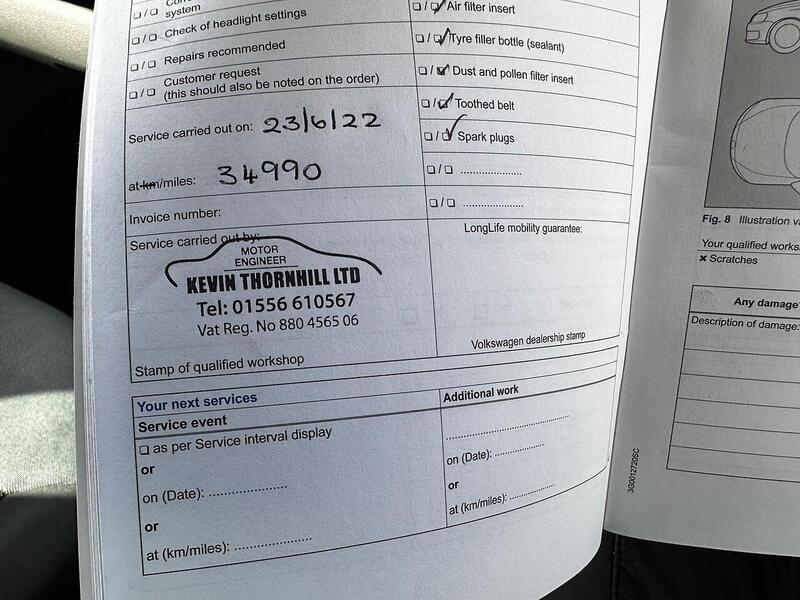 system
❏ / ❏ Check of headlight settings
❏ / ❏ Repairs recommended
❏ / ❏ Customer request
(this should also be noted on the order)
Service carried out on: 23/6/22
at km/miles: 34990
Invoice number:
Service carried out by:
MOTOR
ENGINEER
KEVIN THORNHILL LTD
Tel: 01556 610567
Vat Reg. No 880 4565 06
Stamp of qualified workshop
❏ / ✓ Air filter insert
❏ / ✓ Tyre filler bottle (sealant)
❏ / ✓ Dust and pollen filter insert
❏ / ✓ Toothed belt
❏ / ✓ Spark plugs
❏ / ❏ .....................
❏ / ❏ .....................
LongLife mobility guarantee:
Volkswagen dealership stamp
Your next services
Service event
❏ as per Service interval display
or
on (Date): .....................
or
at (km/miles): .....................
Additional work
.....................
on (Date): .....................
or
at (km/miles): .....................
3G0012720SC
Fig. 8 Illustration
Your qualified
× Scratches
Any damage
Description of damage: